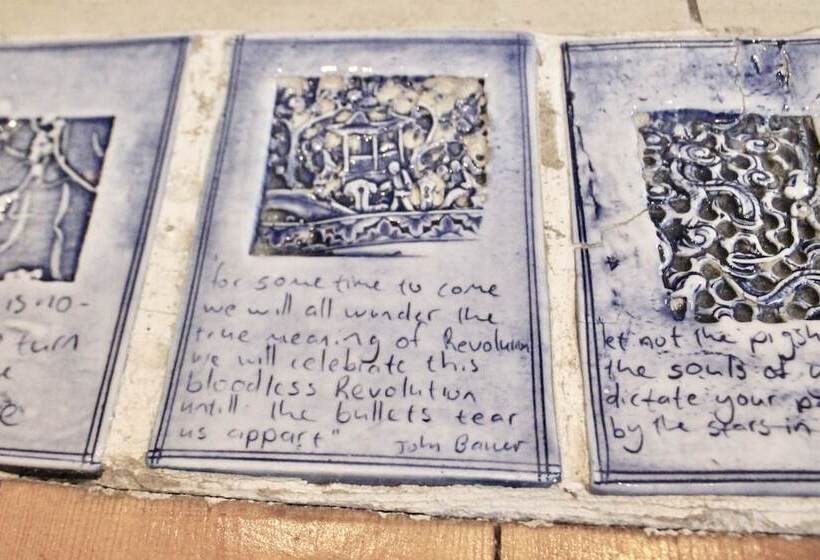 is no-
turn
"for some time to come
we will all wonder the
true meaning of Revolution
we will celebrate this
bloodless Revolution
untill the bullets tear
us appart"
John Bauer
let not the pigsh
the souls of
dictate your pa
by the stars in